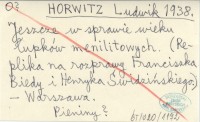 O3 HORWITZ Ludwik 1938.
Jeszcze w sprawie wieku
łupków menilitowych. (Re-
plika na rozprawę Franciszka
Biedy i Henryka Świdzińskiego)
— Warszawa.
Pieniny?